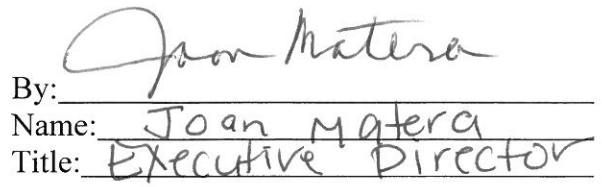 By: Joan Matera
Name: Joan Matera
Title: Executive Director